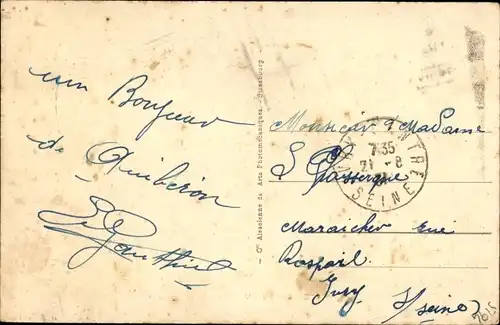 un Bonjour
de Quiberon
Gauthier
— Cie Alsacienne de Arts Photomécaniques - Strasbourg —
Monsieur & Madame
7 35
21 - 8
SEINE
Maraicher rue
Raspail
Ivry s/seine